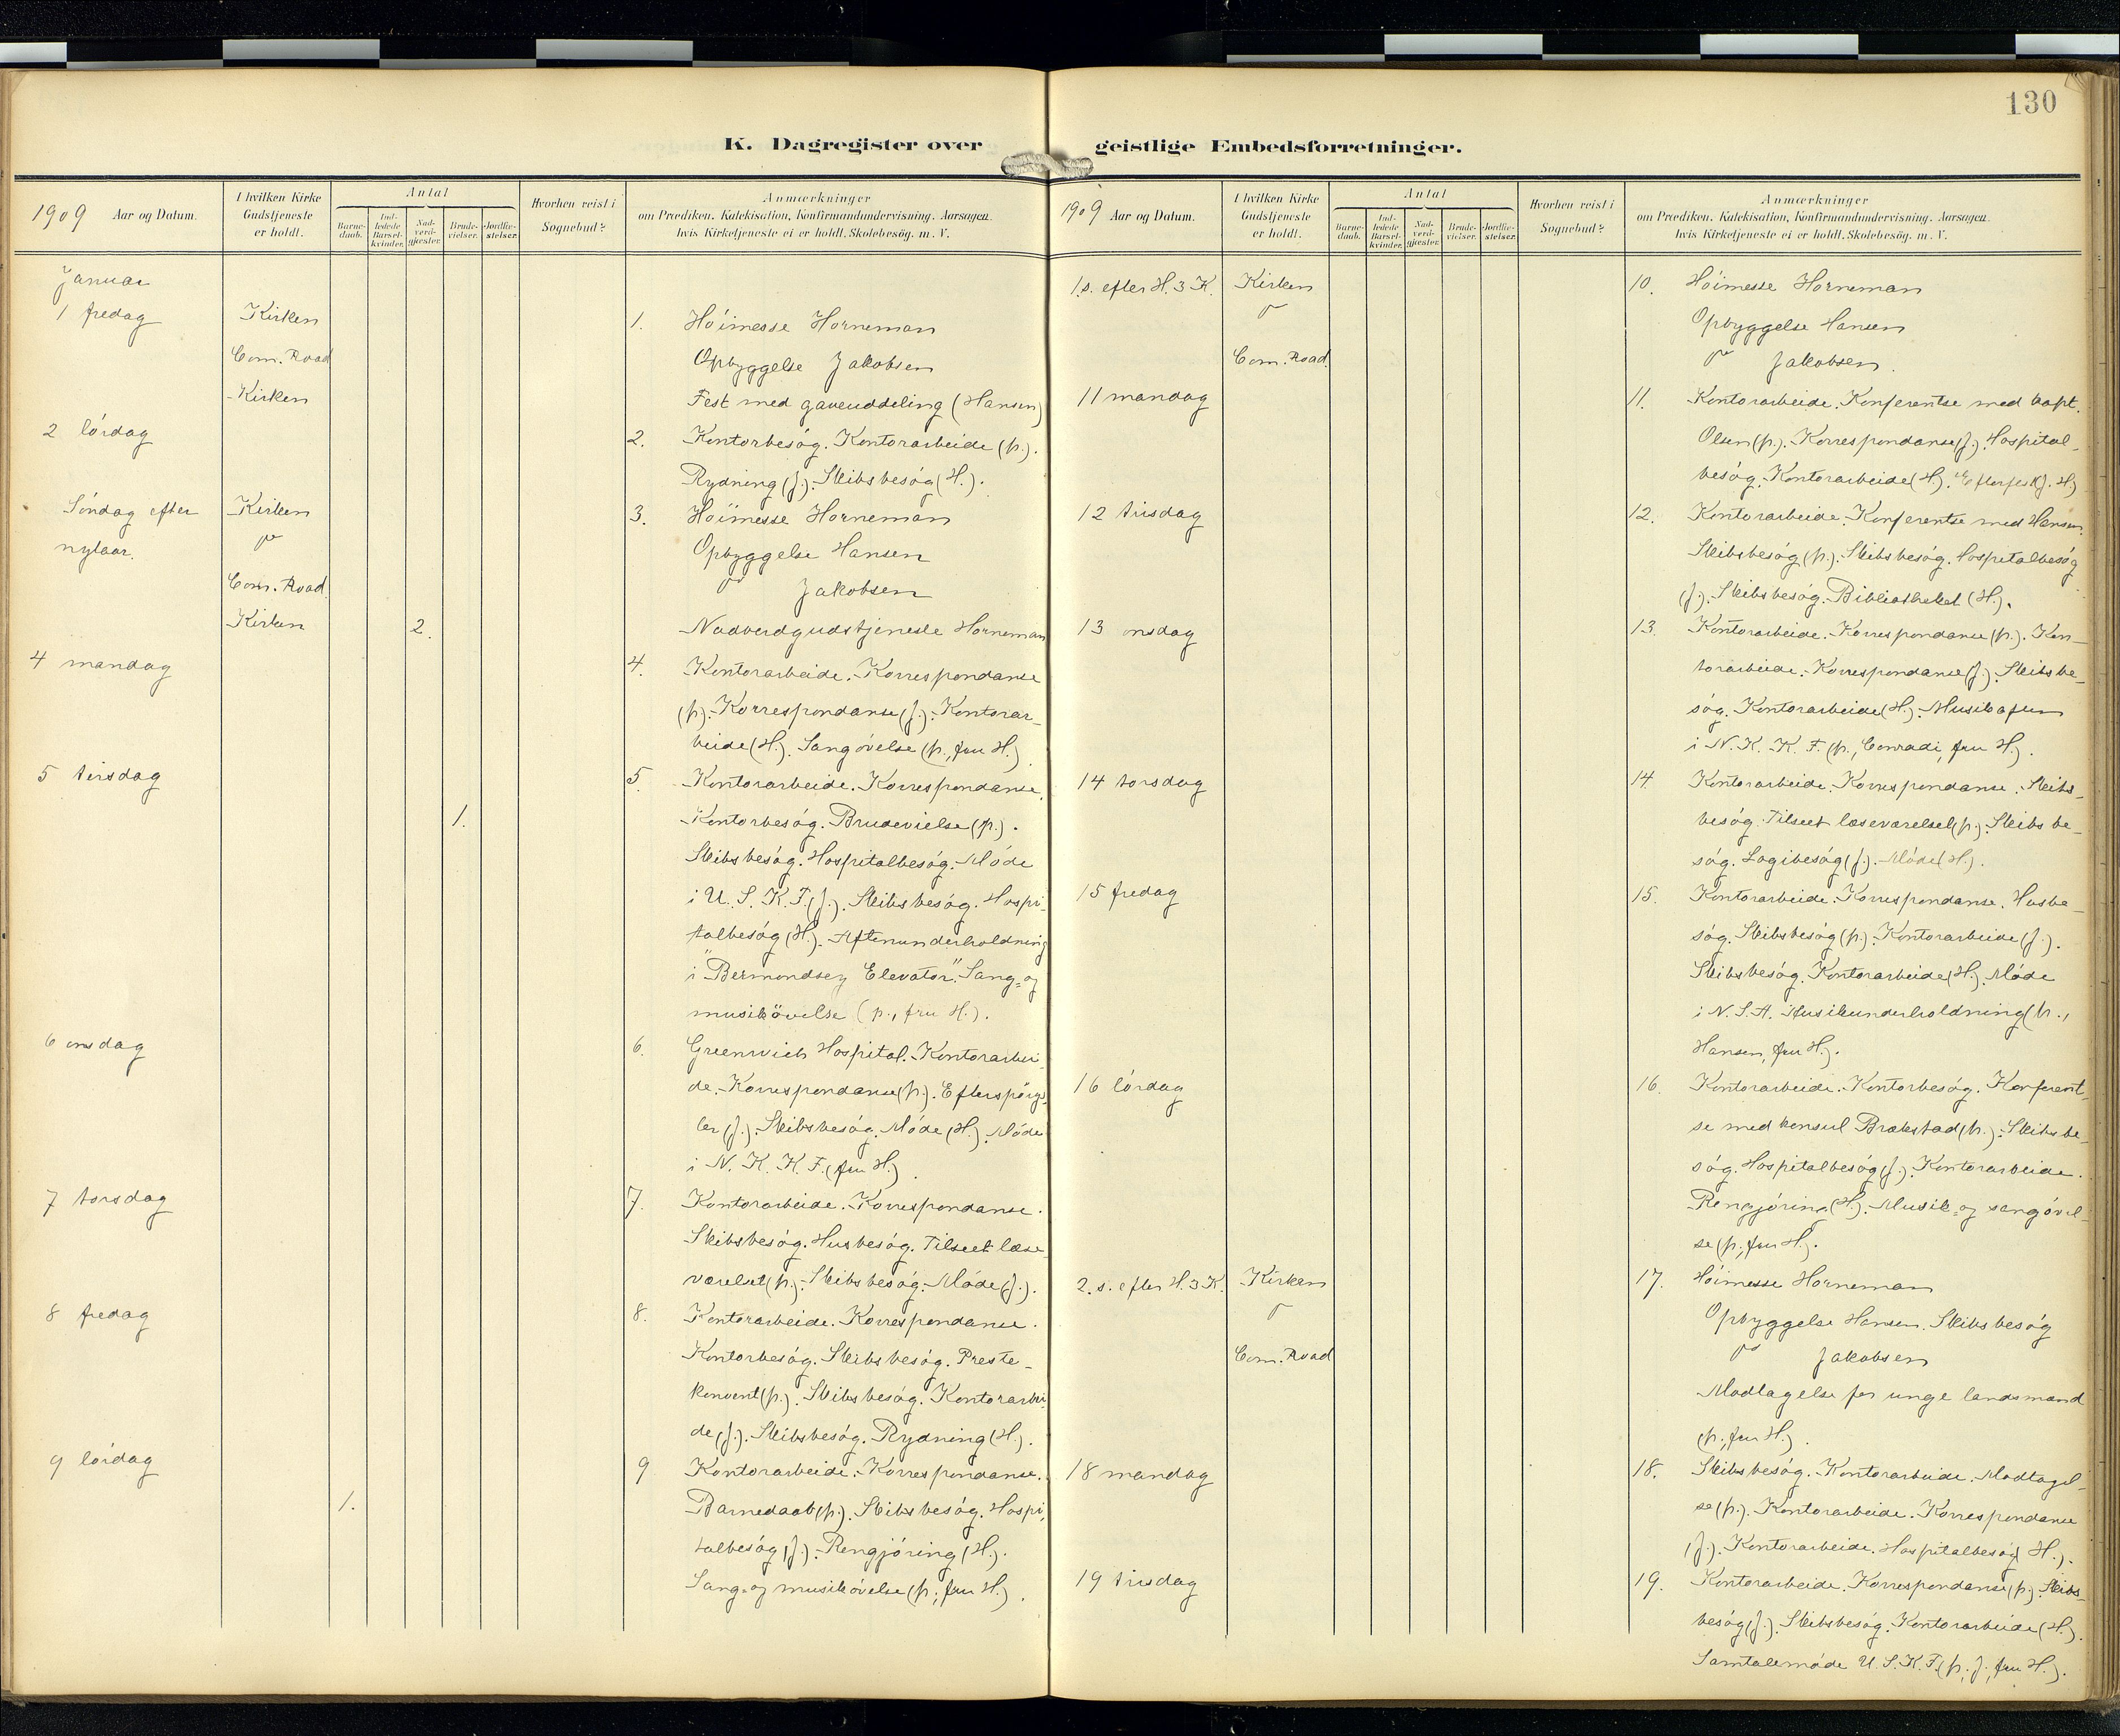 130
K. Dagregister over geistlige Embedsforretninger.
1909 Aar og Datum.
I hvilken Kirke Gudstjeneste er holdt.
Antal
Barne-daab.
Ind-ledede Barsel-kvinder.
Nad-verd-gjæster.
Brude-vielser.
Jordfæ-stelser.
Hvorhen reist i Sognebud?
Anmærkninger
om Prædiken, Katekisation, Konfirmandundervisning, Aarsagen,
hvis Kirketjeneste ei er holdt, Skolebesög, m. V.
Januar
1 fredag Kirken 1. Höimesse Horneman
Com. Road Opbyggelse Jakobsen
Kirken Fest med gaveuddeling (Hansen)
2 lördag 2. Kontorbesög. Kontorarbeide (p.).
Rydning (J.). Skibsbesög (H.).
Söndag efter Kirken 3. Höimesse Horneman
nytaar. Opbyggelse Hansen
Com. Road Jakobsen
Kirken 2. Nadverdgudstjeneste Horneman
4 mandag 4. Kontorarbeide. Korrespondanse
(p.). Korrespondanse (J.). Kontorar-
beide (H.). Sangövelse (p., fru H.).
5 tirsdag 5. Kontorarbeide. Korrespondanse.
1. Kontorbesög. Brudevielse (p.).
Skibsbesög. Hospitalbesög. Möde
i U. S. K. F. (J.). Skibsbesög. Hospi-
talbesög (H.). Aftenunderholdning
i "Bermondsey Elevator". Sang- og
musikövelse (p., fru H.).
6 onsdag 6. Greenwich Hospital. Kontorarbei-
de. Korrespondanse (p.). Efterspörgs-
ler (J.). Skibsbesög. Möde (H.). Möde
i N. K. K. F. (fru H.).
7 torsdag 7. Kontorarbeide. Korrespondanse.
Skibsbesög. Husbesög. Tilseet læse-
værelset (p.). Skibsbesög. Möde (J.).
8 fredag 8. Kontorarbeide. Korrespondanse.
Kontorbesög. Skibsbesög. Preste-
konvent (p.). Skibsbesög. Kontorarbei-
de (J.). Skibsbesög. Rydning (H.).
9 lördag 9 Kontorarbeide. Korrespondanse.
1. Barnedaab (p.). Skibsbesög. Hospi-
talbesög (J.). Rengjöring (H.).
Sang- og musikövelse (p., fru H.).
1909 Aar og Datum.
I hvilken Kirke Gudstjeneste er holdt.
Antal
Barne-daab.
Ind-ledede Barsel-kvinder.
Nad-verd-gjæster.
Brude-vielser.
Jordfæ-stelser.
Hvorhen reist i Sognebud?
Anmærkninger
om Prædiken, Katekisation, Konfirmandundervisning, Aarsagen,
hvis Kirketjeneste ei er holdt, Skolebesög, m. V.
1. s. efter H. 3 K. Kirken 10. Höimesse Horneman
Opbyggelse Hansen
Com. Road Jakobsen.
11 mandag 11. Kontorarbeide. Konferentse med kapt.
Olsen (p.). Korrespondanse (J.). Hospital-
besög. Kontorarbeide (H.). (J. H.)
12 tirsdag 12. Kontorarbeide. Konferentse med Hansen.
Skibsbesög (p.). Skibsbesög. Hospitalbesög
(J.). Skibsbesög. Bibliotheket (H.).
13 onsdag 13. Kontorarbeide. Korrespondanse (p.). Kon-
torarbeide. Korrespondanse (J.). Skibsbe-
sög. Kontorarbeide (H.). Musikaften
i N. K. K. F. (p., Conradi, fru H.).
14 torsdag 14. Kontorarbeide. Korrespondanse. Skibs-
besög. Tilseet læseværelset (p.). Skibsbe-
sög. Logibesög (J.). Möde (H.).
15 fredag 15. Kontorarbeide. Korrespondanse. Husbe-
sög. Skibsbesög (p.). Kontorarbeide (J.).
Skibsbesög. Kontorarbeide (H.). Möde
i N. S. A. Musikunderholdning (p.,
Hansen, fru H.).
16 lördag 16. Kontorarbeide. Kontorbesög. Konferent-
se med konsul Brækstad (p.). Skibsbe-
sög. Hospitalbesög (J.). Kontorarbeide.
Rengjöring (H.). Musik- og sangövel-
se (p., fru H.).
2. s. efter H. 3 K. Kirken 17. Höimesse Horneman
Opbyggelse Hansen. Skibsbesög
Com. Road Jakobsen
Modtagelse for unge landsmænd
(p., fru H.).
18 mandag 18. Skibsbesög. Kontorarbeide. Modtagel-
se (p.). Kontorarbeide. Korrespondanse
(J.). Kontorarbeide. Hospitalbesög (H.).
19 tirsdag 19. Kontorarbeide. Korrespondanse (p.). Skibs-
besög (J.). Skibsbesög. Kontorarbeide (H.).
Samtalemöde U. S. K. F. (p., J., fru H.).